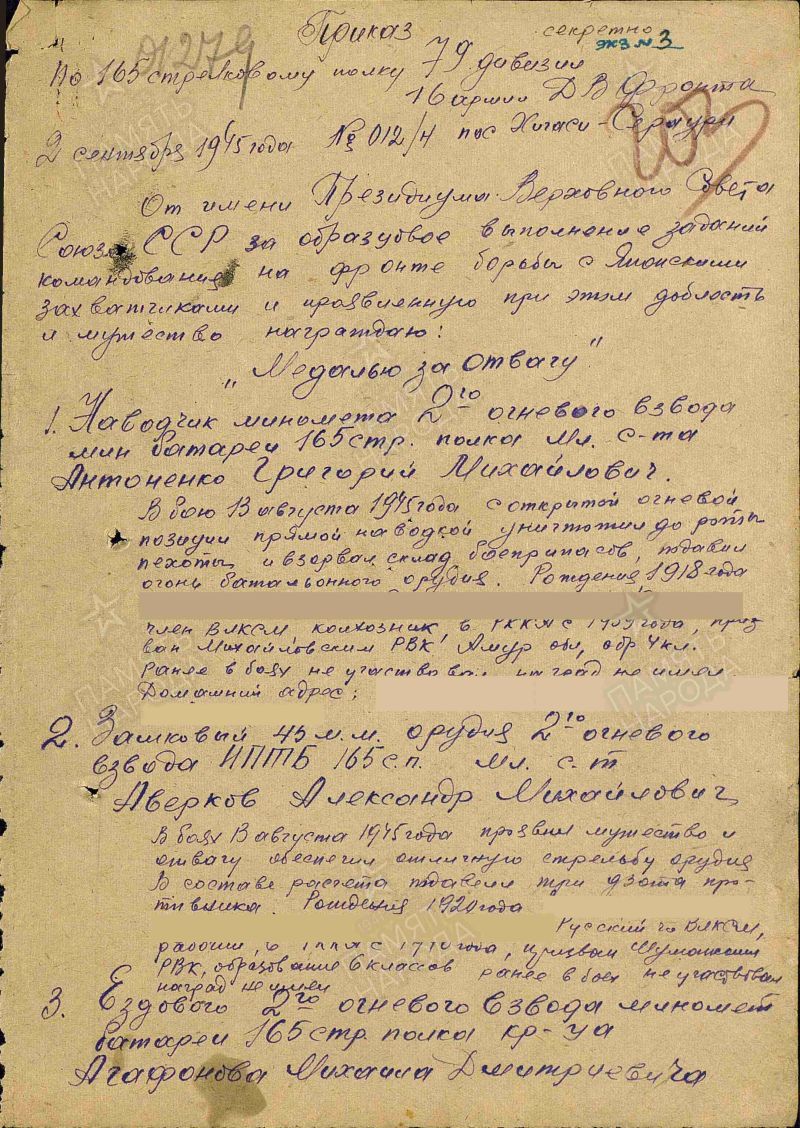 Приказ
секретно
экз №3
01279
По 165 стрелковому полку 79 дивизии
16 армии ДВ Фронта
2 сентября 1945 года №012/н пос Хигаси-
От имени Президиума Верховного Совета
Союза ССР за образцовое выполнение заданий
командования на фронте борьбы с Японскими
захватчиками и проявленную при этом доблость
и мужество награждаю:
"Медалью за отвагу"
1. Наводчик миномета 2го огневого взвода
мин батареи 165 стр. полка мл. с-та
Антоненко Григорий Михайлович.
В бою 13 августа 1945 года с открытой огневой
позиции прямой наводкой уничтожил до роты
пехоты и взорвал склад боеприпасов, подавил
огонь батальонного орудия. Рождения 1918 года
член ВЛКСМ, колхозник, в РККА с 1939 года, приз
ван Михайловским РВК Амур обл, обр 4 кл.
Ранее в боях не участвовал наград не имел
Домашний адрес:
2. Замковый 45 м.м. орудия 2го огневого
взвода ИПТБ 165 с.п. мл. с-т
Аверков Александр Михайлович
В боях 13 августа 1945 года проявил мужество и
отвагу обеспечил отличную стрельбу орудия
В составе расчета подавили три дзота про-
тивника. Рождения 1920 года
Русский чл ВЛКСМ,
года, призван
РВК, образование 6 классов ранее в боях не участвовал
наград не имел
3. Ездового 2го огневого взвода миномет
батареи 165 стр. полка кр-ца
Агафонова Михаила Дмитриевича
ПАМЯТЬ
НАРОДА